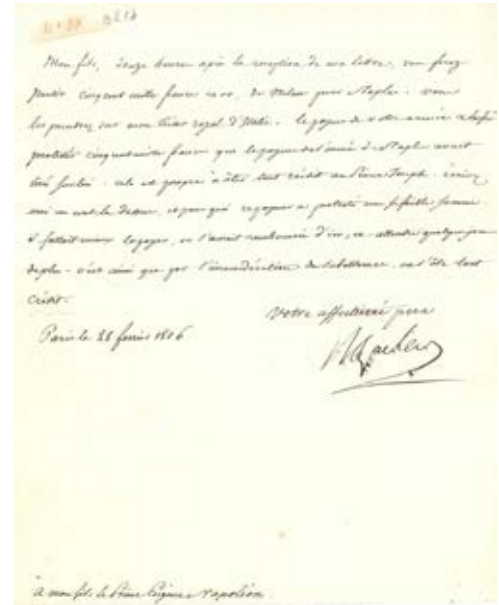 Mon fils, douze heures après la réception de ma lettre, vous ferez
partir cinq cent mille francs en or, de Milan pour Naples. vous
les prendrez sur mon trésor royal d'Italie. le payeur de votre armée a laissé
protester cinq cent mille francs que le payeur de l'armée de Naples avait
tiré sur lui. cela est propre à ôter tout crédit au Prince Joseph. écrivez
moi un mot là dessus, et pourquoi ce payeur a protesté une si faible somme
il fallait mieux la payer, on l'aurait remboursé d'ici, en attendant quelques jours
de plus. c'est ainsi que par l'inconsidération des subalternes, on s'ôte tout
crédit.
Votre affectionné père
Paris le 28 février 1806
Napoleon
à mon fils le Prince Eugène Napoléon